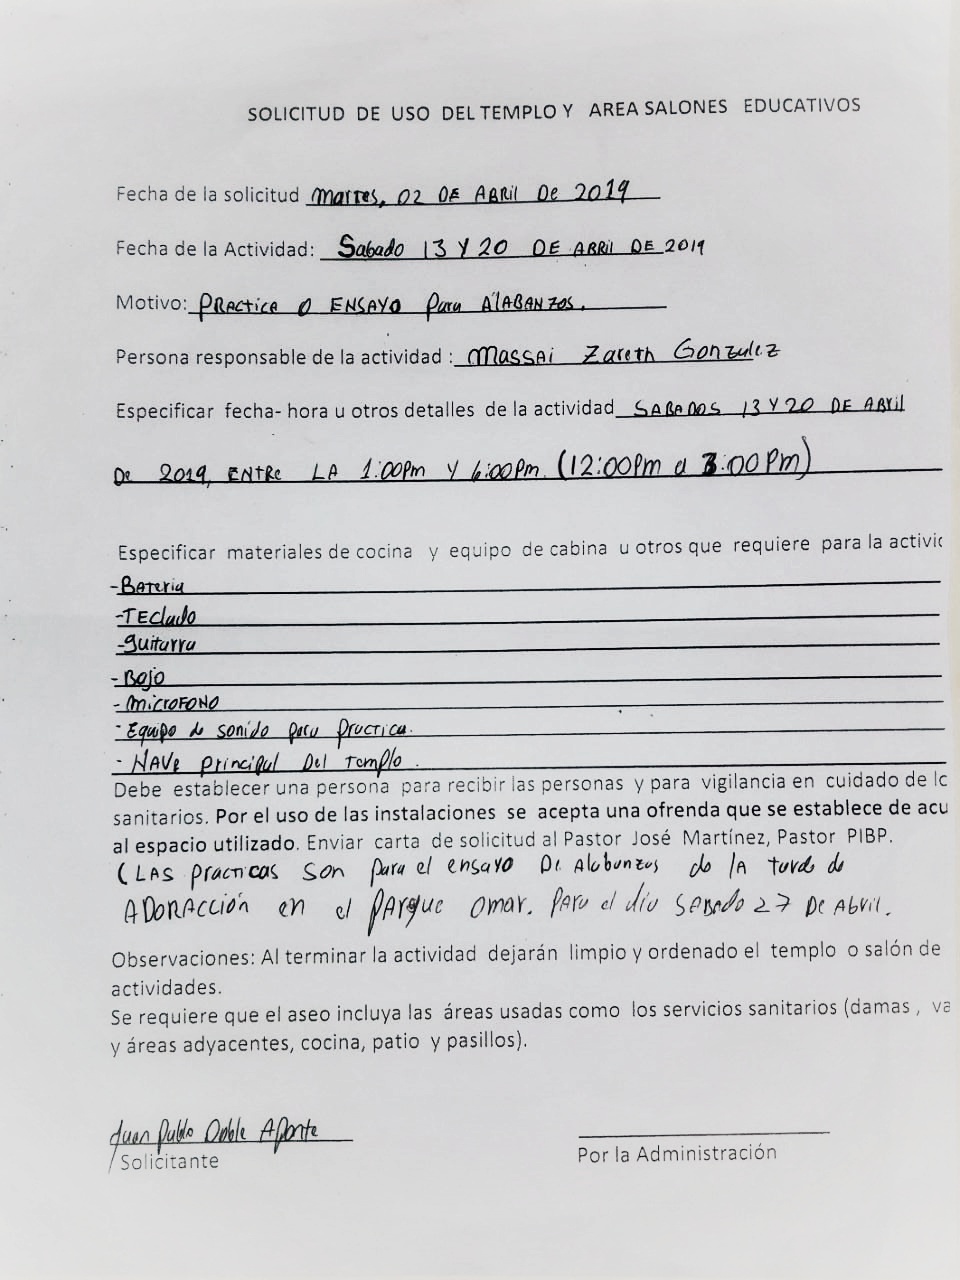 SOLICITUD DE USO DEL TEMPLO Y AREA SALONES EDUCATIVOS
Fecha de la solicitud Martes, 02 DE ABRil De 2019
Fecha de la Actividad: Sabado 13 Y 20 DE ABRil DE 2019
Motivo: PRACTiCA O ENSAYO Para AlABANZAS.
Persona responsable de la actividad : MASSAi Zareth Gonzalez
Especificar fecha- hora u otros detalles de la actividad SABADOS 13 Y 20 DE ABRil
De 2019, ENTRe LA 1:00Pm Y 6:00Pm. (12:00Pm a 3:00 Pm)
Especificar materiales de cocina y equipo de cabina u otros que requiere para la activic
-BATeria
-TEclado
-guitarra
-Bajo
-MicroFONO
-Equipo de sonido para Practica.
-NAVe principal Del Templo.
Debe establecer una persona para recibir las personas y para vigilancia en cuidado de lc
sanitarios. Por el uso de las instalaciones se acepta una ofrenda que se establece de acu
al espacio utilizado. Enviar carta de solicitud al Pastor José Martínez, Pastor PIBP.
(LAS Practicas Son para el ensayo De Alabanzas de lA tarde de
ADORACCión en el PArque Omar. PAra el día Sabado 27 De Abril.
Observaciones: Al terminar la actividad dejarán limpio y ordenado el templo o salón de
actividades.
Se requiere que el aseo incluya las áreas usadas como los servicios sanitarios (damas , va
y áreas adyacentes, cocina, patio y pasillos).
Juan Pablo Doble Aponte
Solicitante
Por la Administración